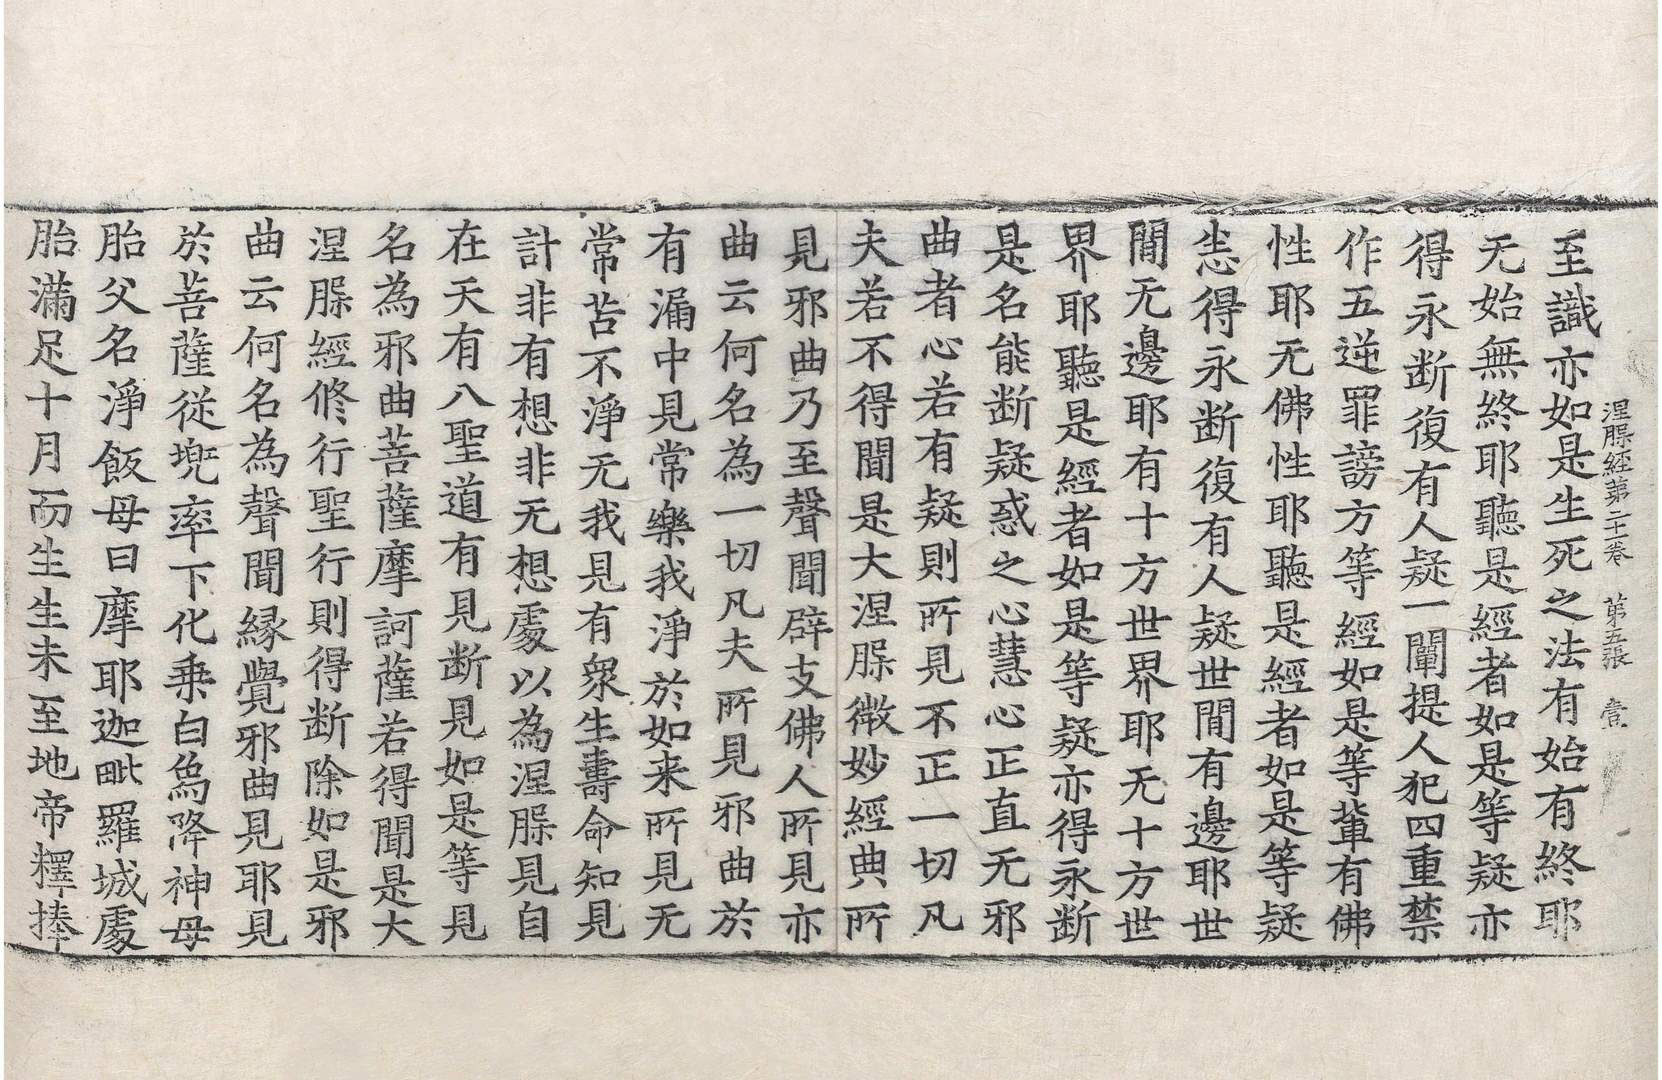 涅槃經第二十卷　第五張　壹
至識亦如是生死之法有始有終耶
无始無終耶聽是經者如是等疑亦
得永断復有人疑一闡提人犯四重禁
作五逆罪謗方等經如是等輩有佛
性耶无佛性耶聽是經者如是等疑
悉得永断復有人疑世間有邊耶世
間无邊耶有十方世界耶无十方世
界耶聽是經者如是等疑亦得永断
是名能断疑惑之心慧心正直无邪
曲者心若有疑則所見不正一切凡
夫若不得聞是大涅槃微妙經典所
見邪曲乃至聲聞辟支佛人所見亦
曲云何名為一切凡夫所見邪曲於
有漏中見常樂我淨於如来所見无
常苦不淨无我見有衆生壽命知見
計非有想非无想處以為涅槃見自
在天有八聖道有見断見如是等見
名為邪曲菩薩摩訶薩若得聞是大
涅槃經修行聖行則得断除如是邪
曲云何名為聲聞縁覺邪曲見耶見
於菩薩從兜率下化乗白象降神母
胎父名淨飯母曰摩耶迦毗羅城處
胎滿足十月而生生未至地帝釋捧